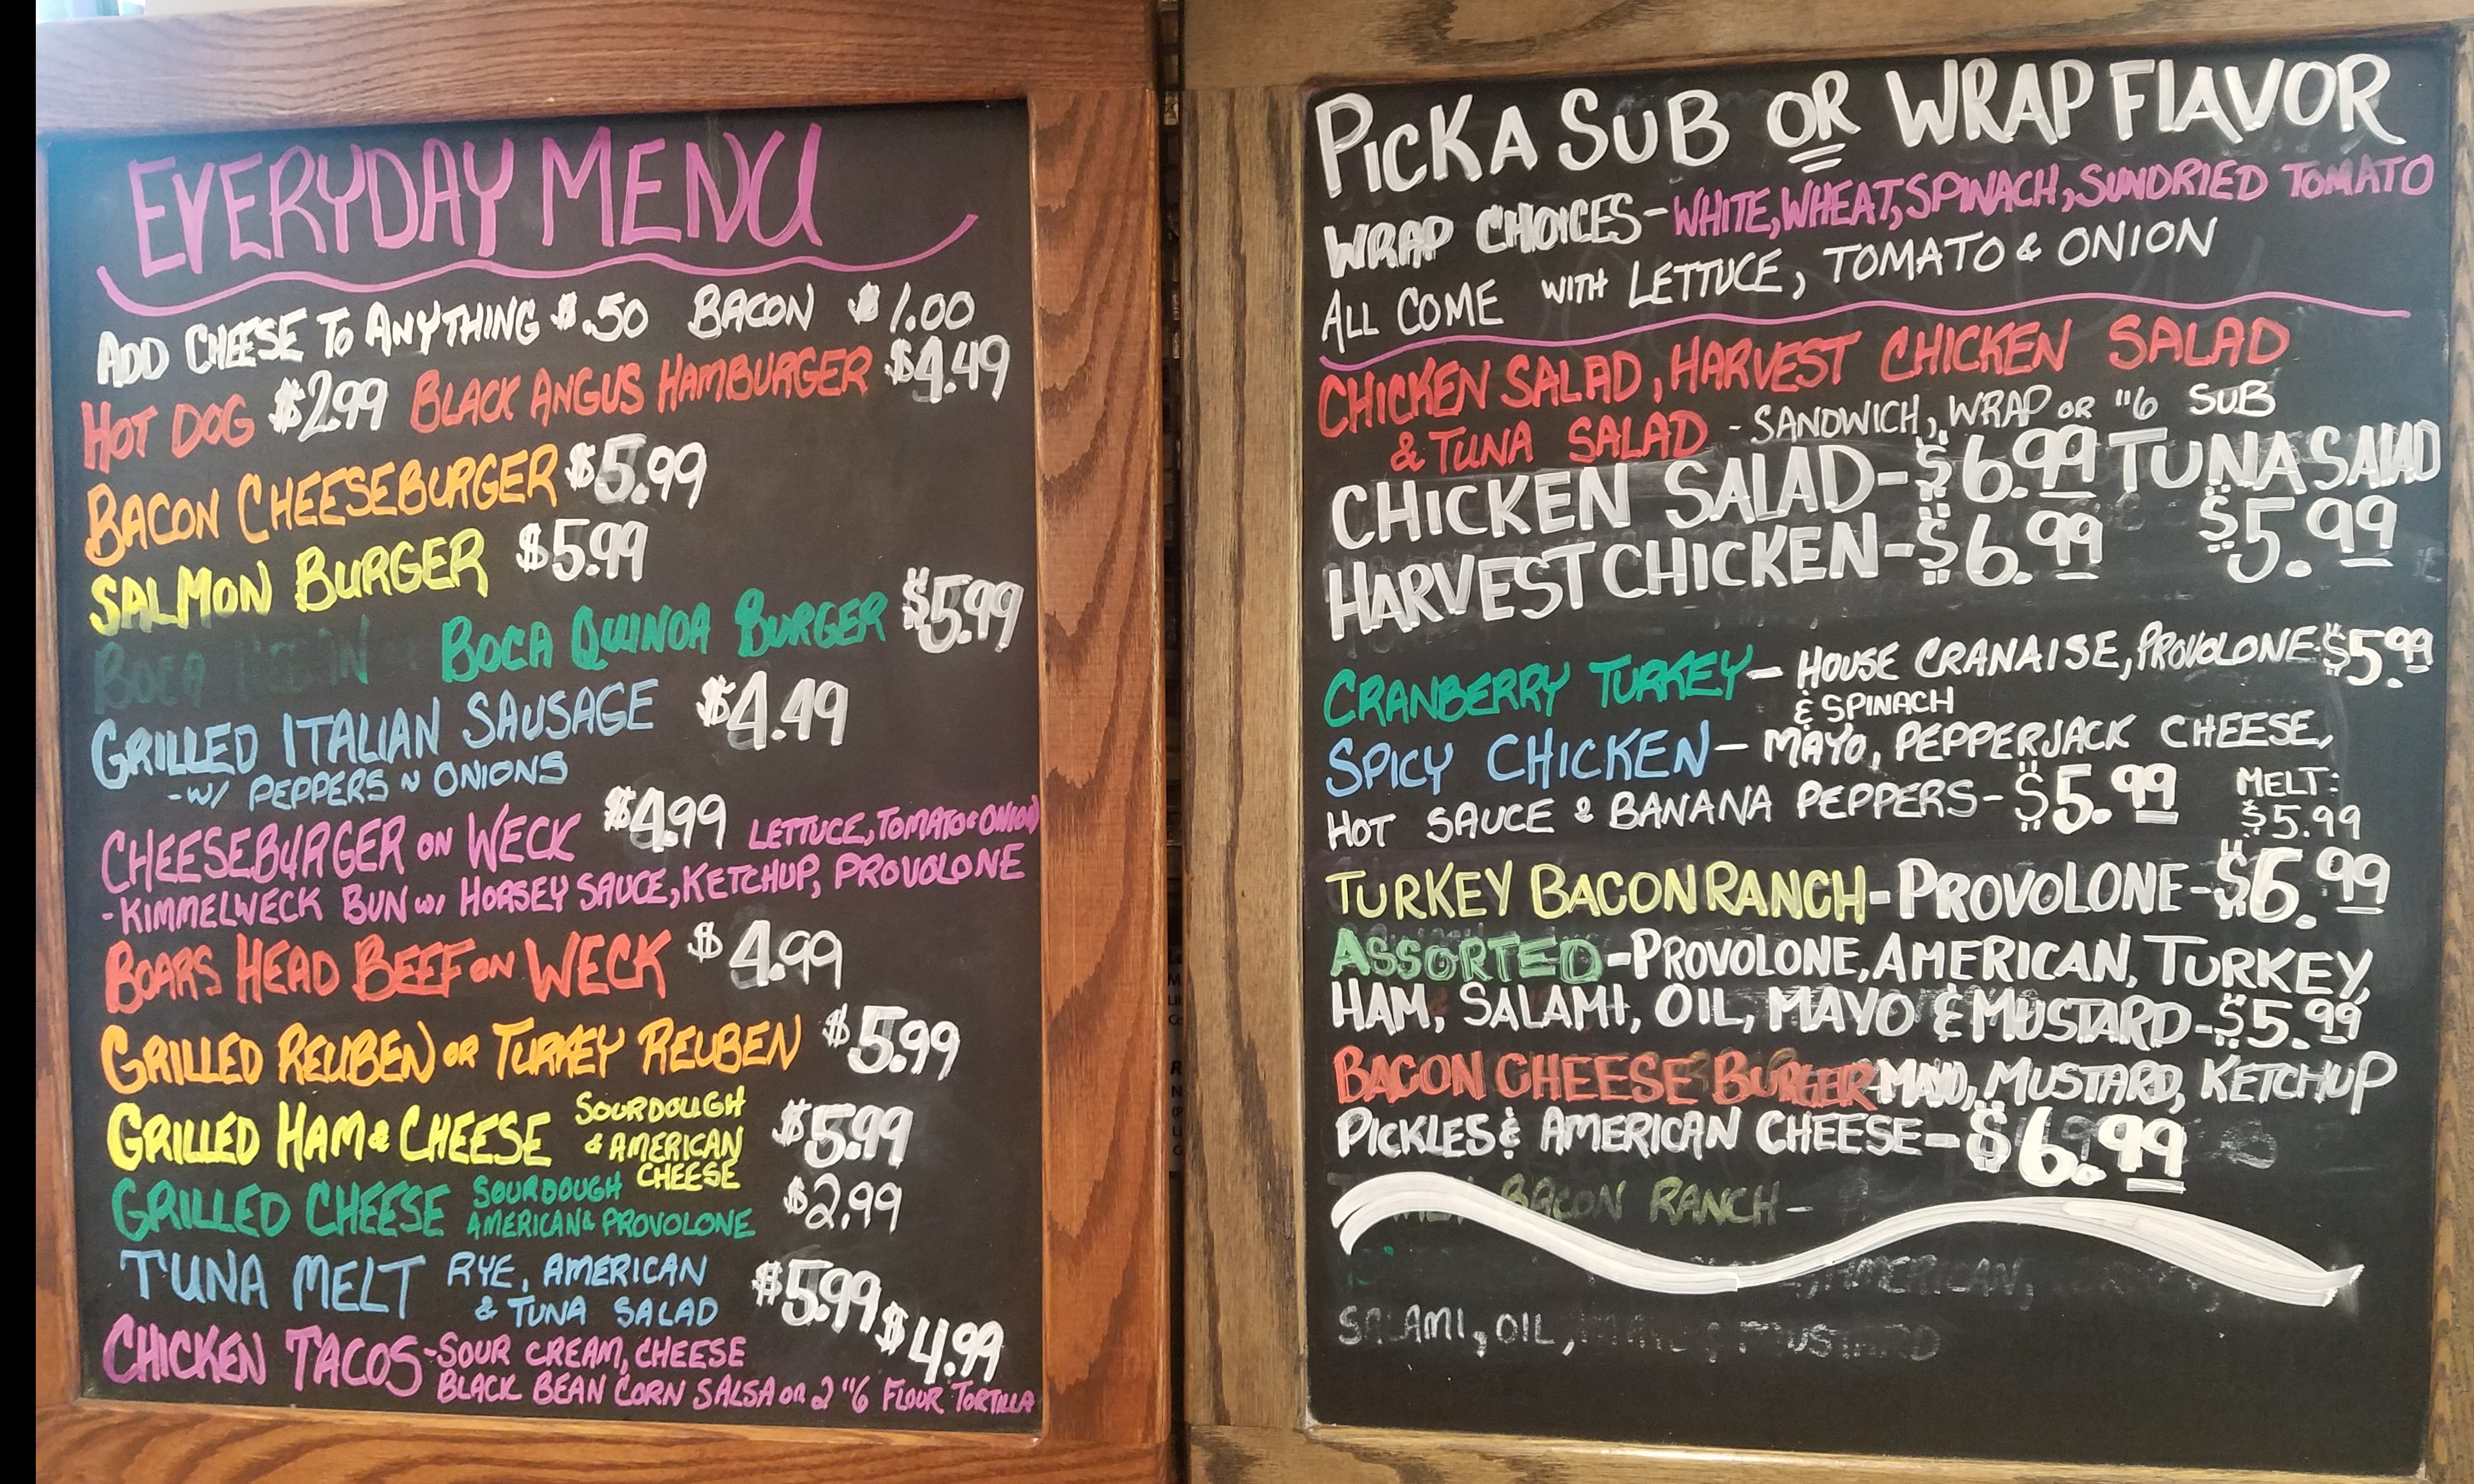 EVERYDAY MENU
ADD CHEESE TO ANYTHING $.50 BACON $1.00
HOT DOG $2.99 BLACK ANGUS HAMBURGER $4.49
BACON CHEESEBURGER $5.99
SALMON BURGER $5.99
BOCA BOCA QUINOA BURGER $5.99
GRILLED ITALIAN SAUSAGE $4.49
-W/ PEPPERS N ONIONS
CHEESEBURGER ON WECK $4.99 LETTUCE, TOMATO & ONION
-KIMMELWECK BUN W/ HORSEY SAUCE, KETCHUP, PROVOLONE
BOARS HEAD BEEF ON WECK $4.99
GRILLED REUBEN OR TURKEY REUBEN $5.99
GRILLED HAM & CHEESE SOURDOUGH & AMERICAN CHEESE $5.99
GRILLED CHEESE SOURDOUGH AMERICAN & PROVOLONE $2.99
TUNA MELT RYE, AMERICAN & TUNA SALAD $5.99
CHICKEN TACOS-SOUR CREAM, CHEESE $4.99
BLACK BEAN CORN SALSA on 2 "6 FLOUR TORTILLA
PICK A SUB OR WRAP FLAVOR
WRAP CHOICES-WHITE, WHEAT, SPINACH, SUNDRIED TOMATO
ALL COME WITH LETTUCE, TOMATO & ONION
CHICKEN SALAD, HARVEST CHICKEN SALAD
& TUNA SALAD -SANDWICH, WRAP OR "6 SUB
CHICKEN SALAD-$6.99 TUNA SALAD
HARVEST CHICKEN-$6.99 $5.99
CRANBERRY TURKEY- HOUSE CRANAISE, PROVOLONE $5.99
& SPINACH
SPICY CHICKEN- MAYO, PEPPERJACK CHEESE,
HOT SAUCE & BANANA PEPPERS-$5.99 MELT: $5.99
TURKEY BACON RANCH-PROVOLONE-$6.99
ASSORTED-PROVOLONE, AMERICAN, TURKEY,
HAM, SALAMI, OIL, MAYO & MUSTARD-$5.99
BACON CHEESE BURGER-MAYO, MUSTARD, KETCHUP
PICKLES & AMERICAN CHEESE-$6.99
BACON RANCH-
, AMERICAN,
SALAMI, OIL, MUSTARD